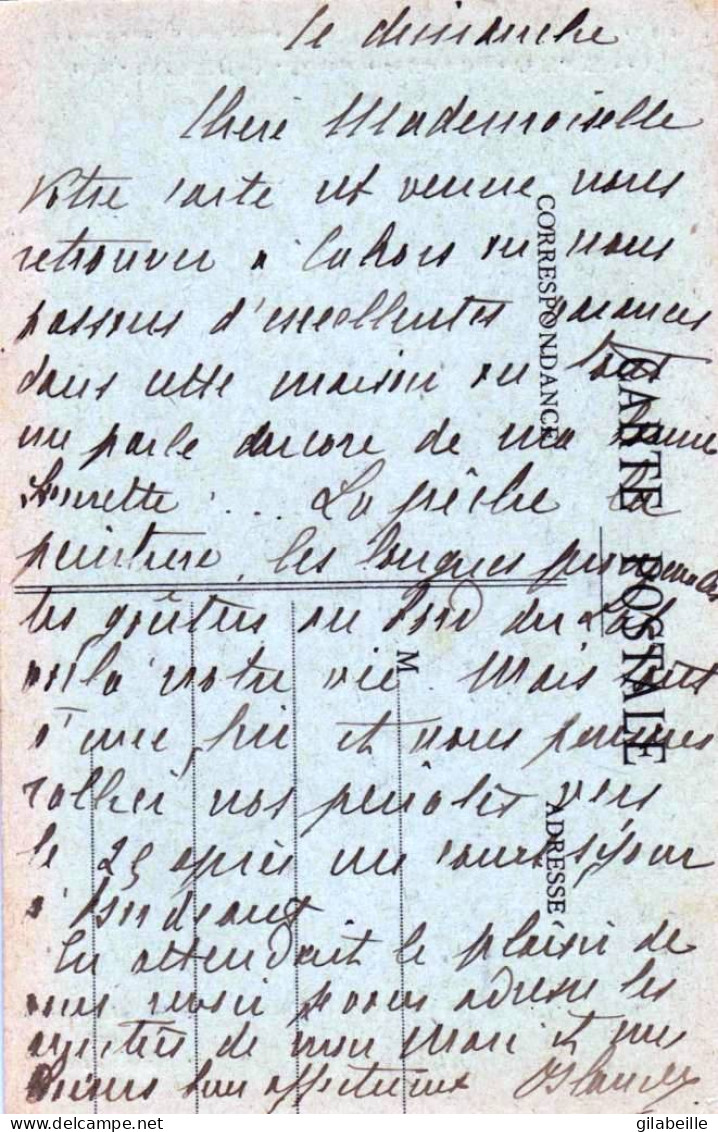 le dimanche
Chere Mademoiselle
Votre carte est venue nous
retrouver a Cahors ou nous
passons d'excellentes vacances
dans cette maison ou tout
me parle encore de ma bonne
... La pêche la
peinture, les longues promenades
les goûters au bord du Lot
voilà notre vie. Mais tout
a une fin et nous pensons
rallier nos pénates vers
le 25 après un court séjour
a Bordeaux
En attendant le plaisir de
vous revoir je vous adresse les
de mon Mari et mes
bien affectueux
CORRESPONDANCE
CARTE POSTALE
M
ADRESSE
gilabeille